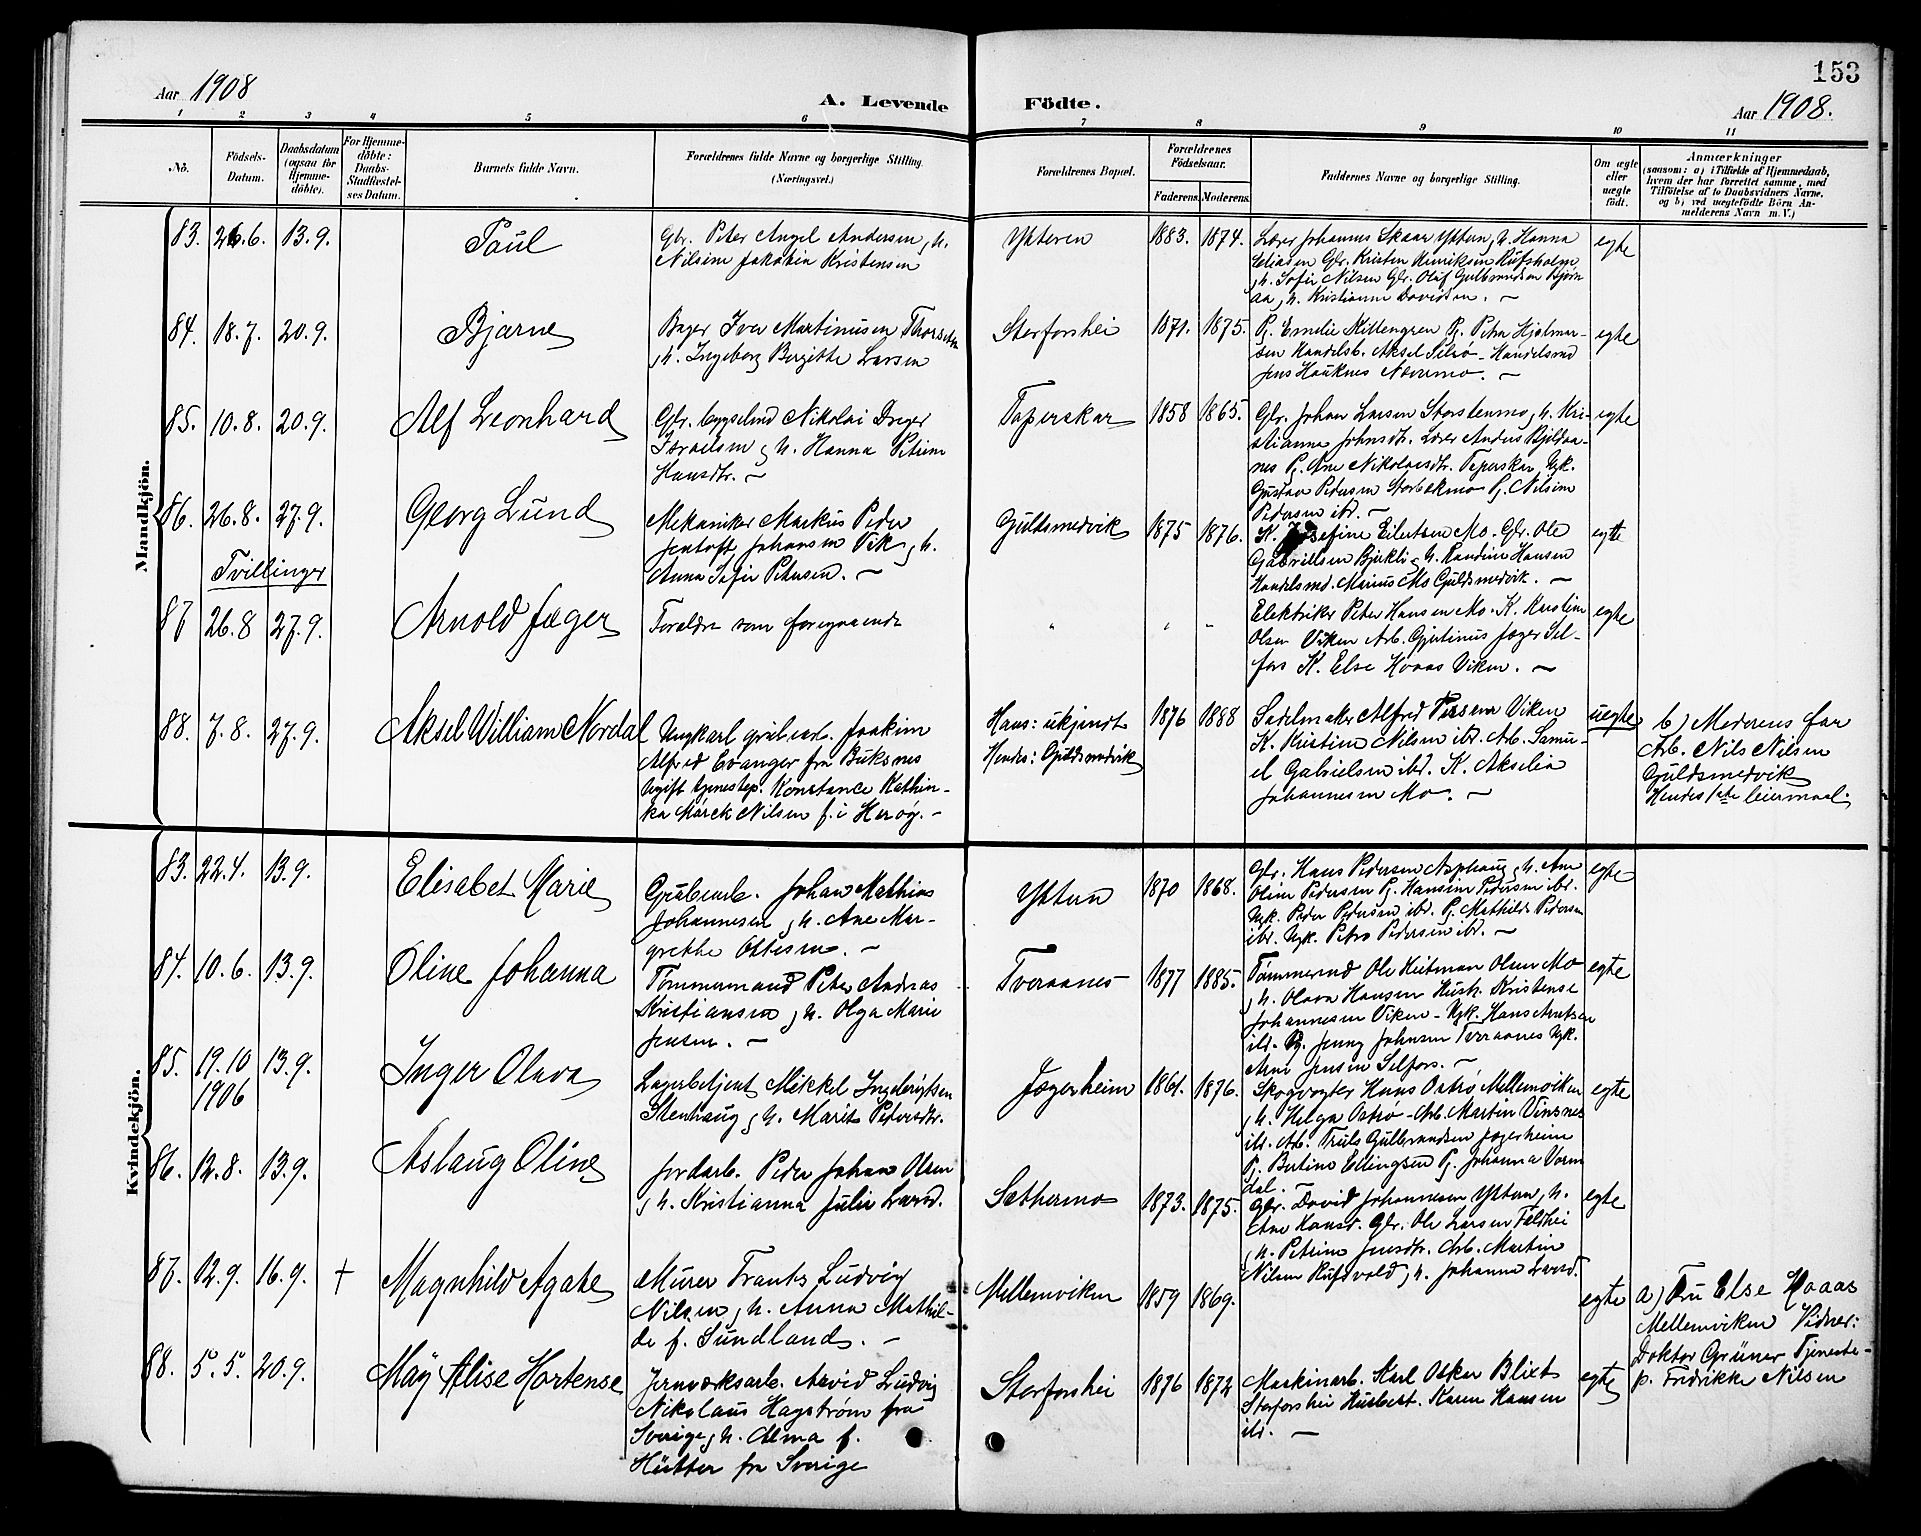 153
Aar 1908
A. Levende Födte.
Aar 1908.
1 2 3 4 5 6 7 8 9 10 11
No.
Födsels-Datum.
Daabsdatum (ogsaa for Hjemme-döbte).
For Hjemme-döbte: Daabs-Stadfæstel-ses Datum.
Barnets fulde Navn.
Forældrenes fulde Navne og borgerlige Stilling.
(Næringsvei.)
Forældrenes Bopæl.
Forældrenes Födselsaar.
Faderens. Moderens.
Faddernes Navne og borgerlige Stilling.
Om ægte eller uægte födt.
Anmærkninger
(saasom: a) i Tilfælde af Hjemmedaab,
hvem der har forrettet samme, med
Tilföielse af to Daabsvidners Navne,
og b) ved uægtefödte Börn An-
melderens Navn m. V.)
Mandkjön.
83. 26.6. 13.9. Paul
Gbr. Peter Angel Andersen, h.
Nilsine Jakobia Kristensen
Ytteren 1883. 1874.
Lærer Johannes Skaar Yttern, h. Hanna
Eliasen Gbr. Kristen Henriksen Rufsholm
h. Sofie Nilsen Gbr. Oluf Gulbrandsen Bjørn-
aa, h. Kristianne Davidsen. —
egte
84. 18.7. 20.9. Bjarne
Bager Iver Martinusen Thorsen
h. Ingeborg Birgitte Larsen
Storforshei 1871. 1875.
Pj. Emelie Killengren Pj. Petra Hjalmar-
sen Handelsb. Aksel Selsø - Handelsmd
Jens Hauknes Nævermo. —
egte
85. 10.8. 20.9. Alf Leonhard
Gbr. bygselmd Nikolai Dreyer
Israelsen, h. Hanna Petrine
Hansdtr. —
Taperskar 1858 1865.
Gbr. Johan Larsen Storstenmo, h. Kri-
stianna Johnsdtr. Lærer Anders Bjeldaa-
nes Pj. Ane Nikolaisdtr. Teperskar, Ugk.
Gustav Pedersen Storbækmo Pj. Nilsine
Pedersen ibd. —
egte
86. 26.8. 27.9. Georg Lund
Mekaniker Markus Peder
Jentoft Johansen Vik, h.
Anna Sofie Petersen. —
Guldsmedvik 1875 1876.
K. Josefine Eilertsen Mo. Gbr. Ole
Gabrielsen Bjerkli, h. Randine Hansen
Handelsmd. Marius Mo Guldsmedvik. —
egte
Tvillinger
87 26.8 27.9. Arnold Jæger
Forældre som foregaaende
" " "
Elektriker Peter Hansen Mo. K. Karoline
Olsen Viken Arb. Gjertinus Jæger Sel-
fors K. Else Hoaas Viken. —
egte
88. 7.8. 27.9. Aksel William Nordal
Ungkarl grubearb. Joakim
Alfred Evanger fra Buksnes
Ugift tjenestep. Konstance Kathin-
ka Mørck Nilsen f. i Herøy. -
Hans: ukjendt
Hendes: Guldsmedvik
1876 1888
Sadelmaker Alfred Iversen Viken
K. Kristine Nilsen ibd. Arb. Samu-
el Gabrielsen ibd. K. Akselia
Johannesen Mo. —
uegte
b) Moderens far
Arb. Nils Nilsen
Guldsmedvik
Hendes 1ste leiermaal.
Kvindekjön.
83. 22.4. 13.9. Elisabet Marie
Grubearb. Johan Mathias
Johannesen, h. Ane Mar-
grethe Ottesen. —
Yttern 1870 1868.
Gbr. Hans Pedersen Asphaug, h. Ane
Oline Pedersen Pj. Hansine Pedersen ibd.
Ugk. Peder Pedersen ibd. Pj. Mathilde Pedersen
ibd. Ugk. Petro Pedersen ibd. —
egte
84. 10.6. 13.9. Oline Johanna
Tømmermand Peter Andreas
Kristiansen, h. Olga Marie
Jensen. —
Tveraanes 1877 1885.
Tømmermd Ole Heitman Olsen Mo
h. Olava Hansen Husk. Kristense
Johannesen Viken - Ugk. Hans Arntsen
ibd. Pj. Jenny Johnsen Tveraanes Ugk.
Arne Jensen Selfors. —
egte
85. 19.10 1906 13.9. Inger Olava
Lagerbetjent Mikkel Ingebrigtsen
Stenhaug, h. Marit Pedersdtr.
Jægerheim 1861. 1876.
Skogvogter Hans Østrø Mellemviken
h. Helga Østrø - Arb. Martin Vinsnes
ibd. Arb. Truls Gulbrandsen Jægerheim
Pj. Berline Ellingsen Pj. Johanna Vorm-
dal. —
egte
86. 12.8. 13.9. Aslaug Oline
Jordarb. Peder Johan Olsen
h. Kristianna Julie Larsd.
Sæthermo 1873. 1875.
Gbr. David Johannesen Yttern, h.
Ane Hansd. Gbr. Ole Larsen Feldhei
h. Petrine Jensdtr. Arb. Martin
Nilsen Rufsvold, h. Johanna Larsd.
egte
87. 12.9. 16.9. † Magnhild Agate
Murer Frants Ludvig
Nilsen, h. Anna Mathil-
de f. Sundland. —
Mellemviken 1859 1869.
egte
a) Fru Else Hoaas
Mellemviken Vidner:
Doktor Grüner Tjeneste-
p. Fredrikke Nilsen
88. 5.5. 20.9. Maÿ Alise Hortense
Jernværksarb. Arvid Ludvig
Nikolaus Hagstrøm fra
Sverige, h. Alma f.
Hütter fra Sverige
Storforshei 1876 1872
Maskinarb. Karl Oskar Blixt
Storforshei Husbest. Karen Hansen
ibd. —
egte